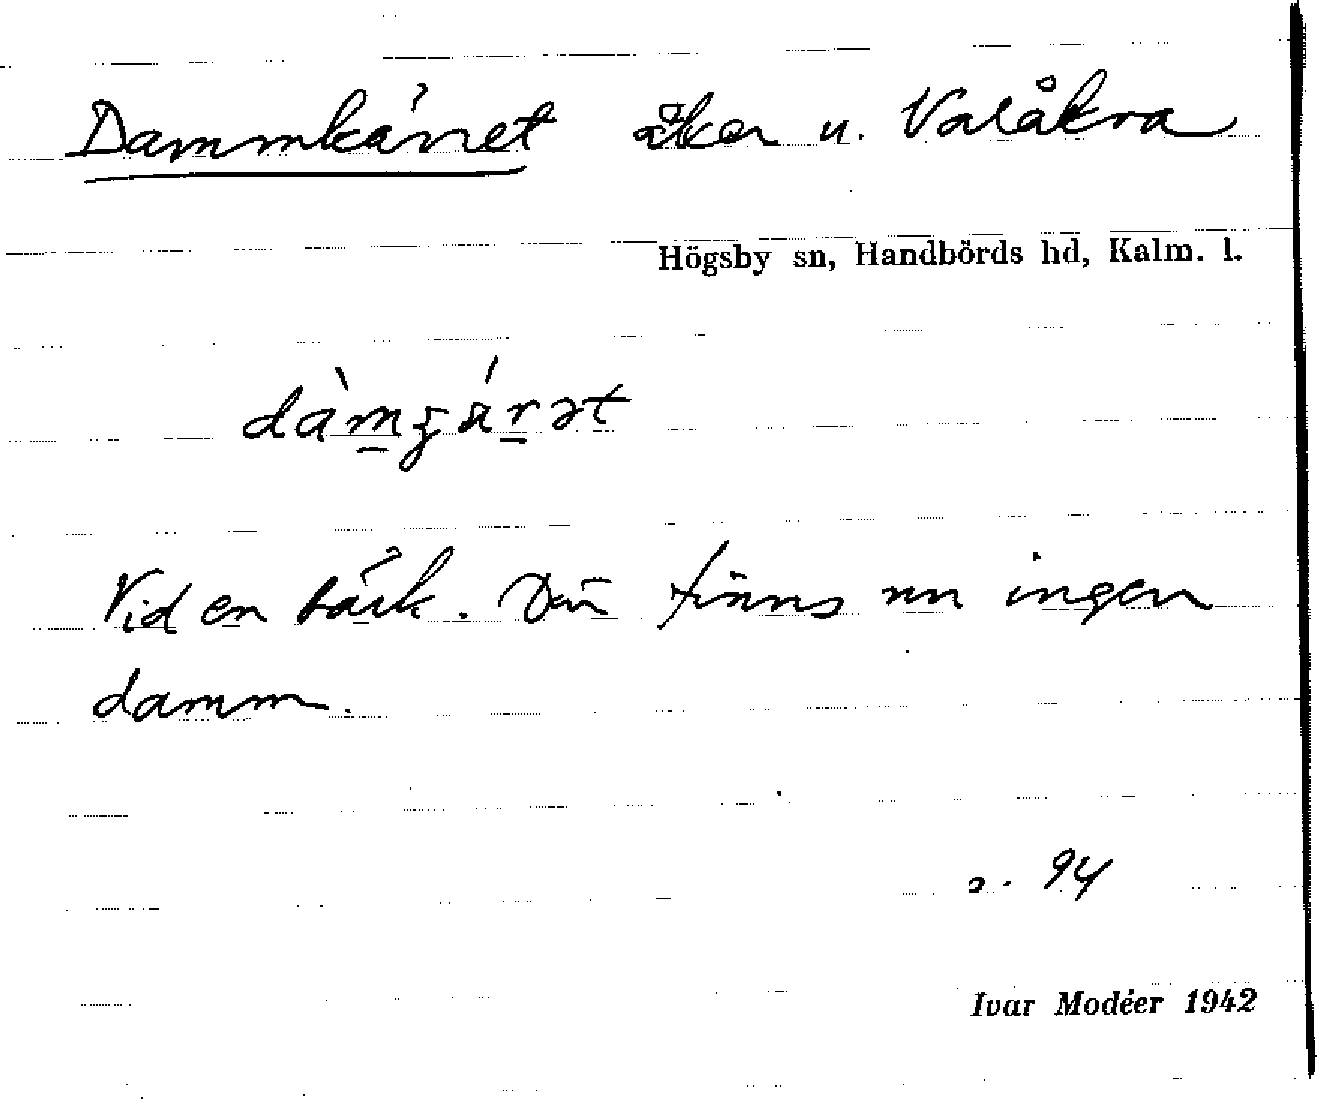 Dammkärret åker u. Valåkra
Högsby sn, Handbörds hd, Kalm. l.
Vid en bäck. Där finns nu ingen
damm.
a. 94
Ivar Modéer 1942